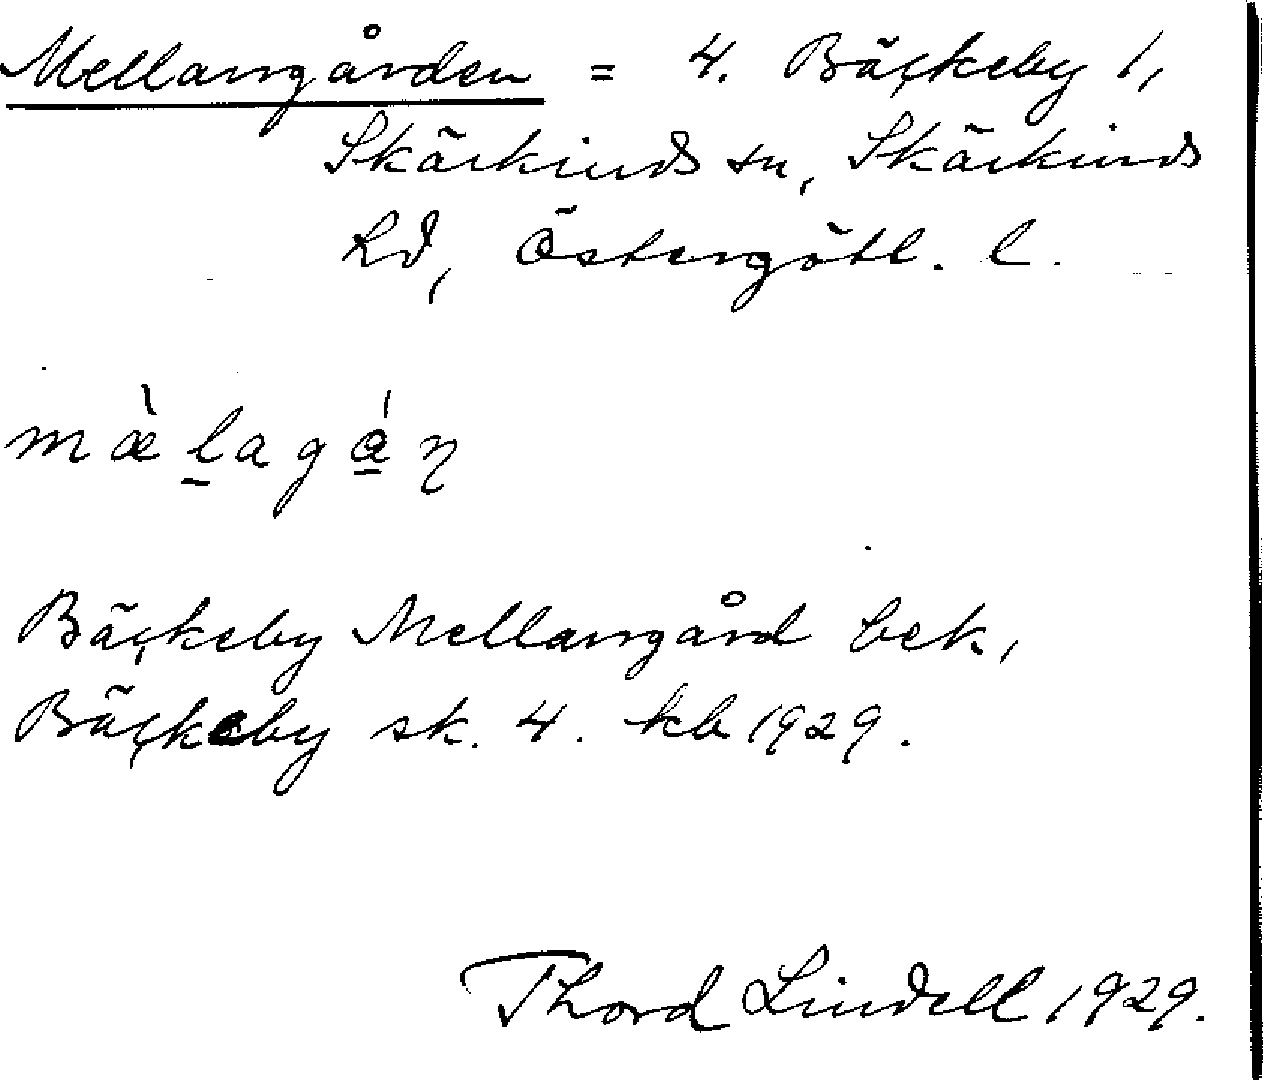 Mellangården = 4. Bäckeby 1,
Skärkinds sn, Skärkinds
hd, Östergötl. l.
mæ̀l̠agá̠n
Bäckeby Mellangård bek.,
Bäckeby sk. 4. kb 1929.
Thord Lindell 1929.